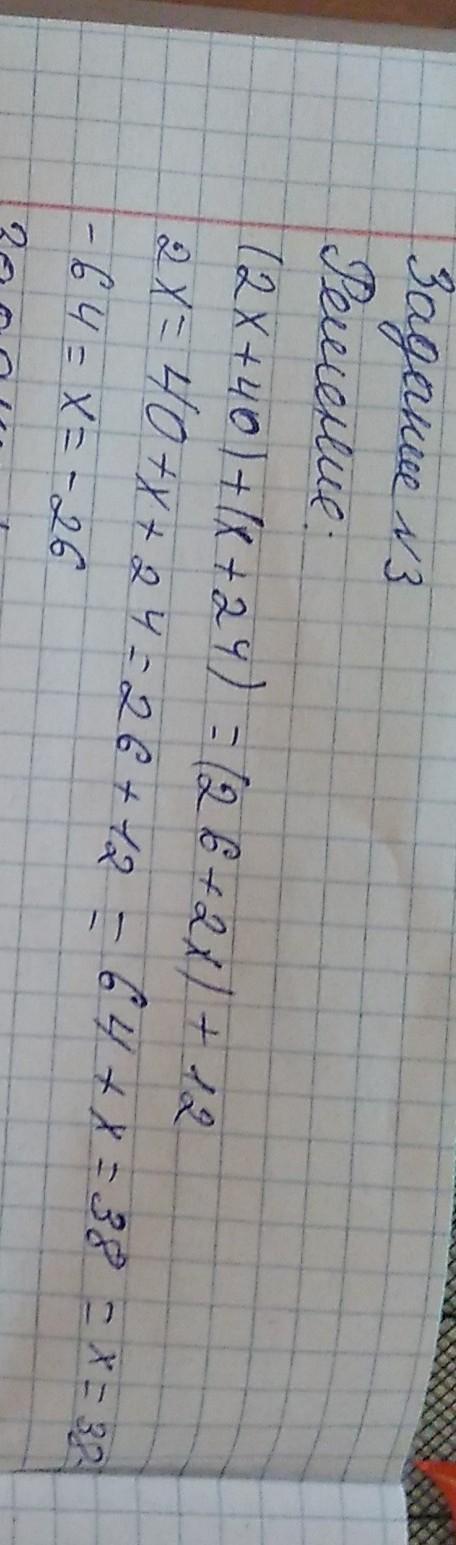 Задание №3
Решение:
(2x+40)+(x+24)=(26+2x)+12
2x=40+x+24=26+12=64+x=38=x=38
-64=x=-26